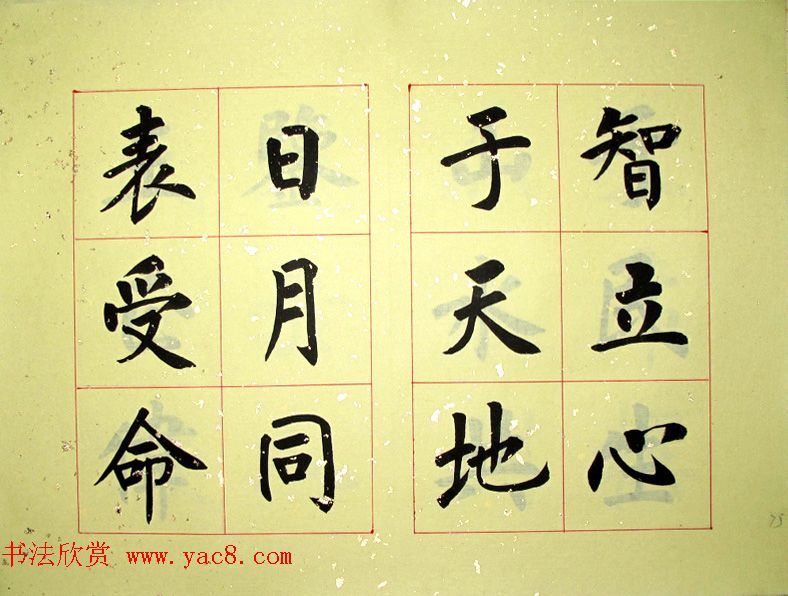 智立心
于天地
日月同
表受命
书法欣赏 www.yac8.com
75